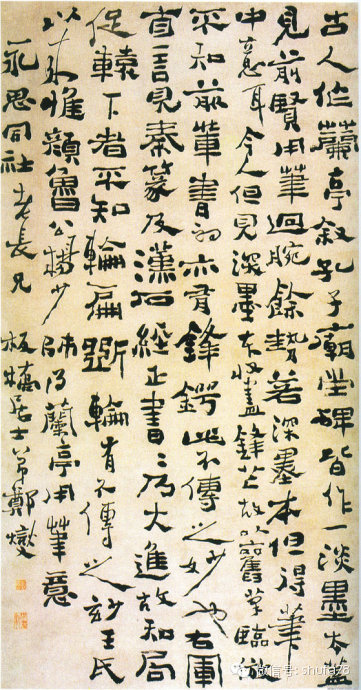 古人作蘭亭敘孔子廟堂碑皆作一淡墨本蓋
見前賢用筆迴腕餘勢若深墨本但得筆
中意耳今人但見深墨本收盡鋒芒故以舊筆臨
不知前輩書初亦有鋒鍔此不傳之妙也右軍
自言見秦篆及漢石經正書〻乃大進故知局
促轅下者不知輪扁斲輪有不傳之妙王氏
以來惟顏魯公楊少師得蘭亭用筆意
永思同社老長兄 板橋居士弟鄭燮
微信号: